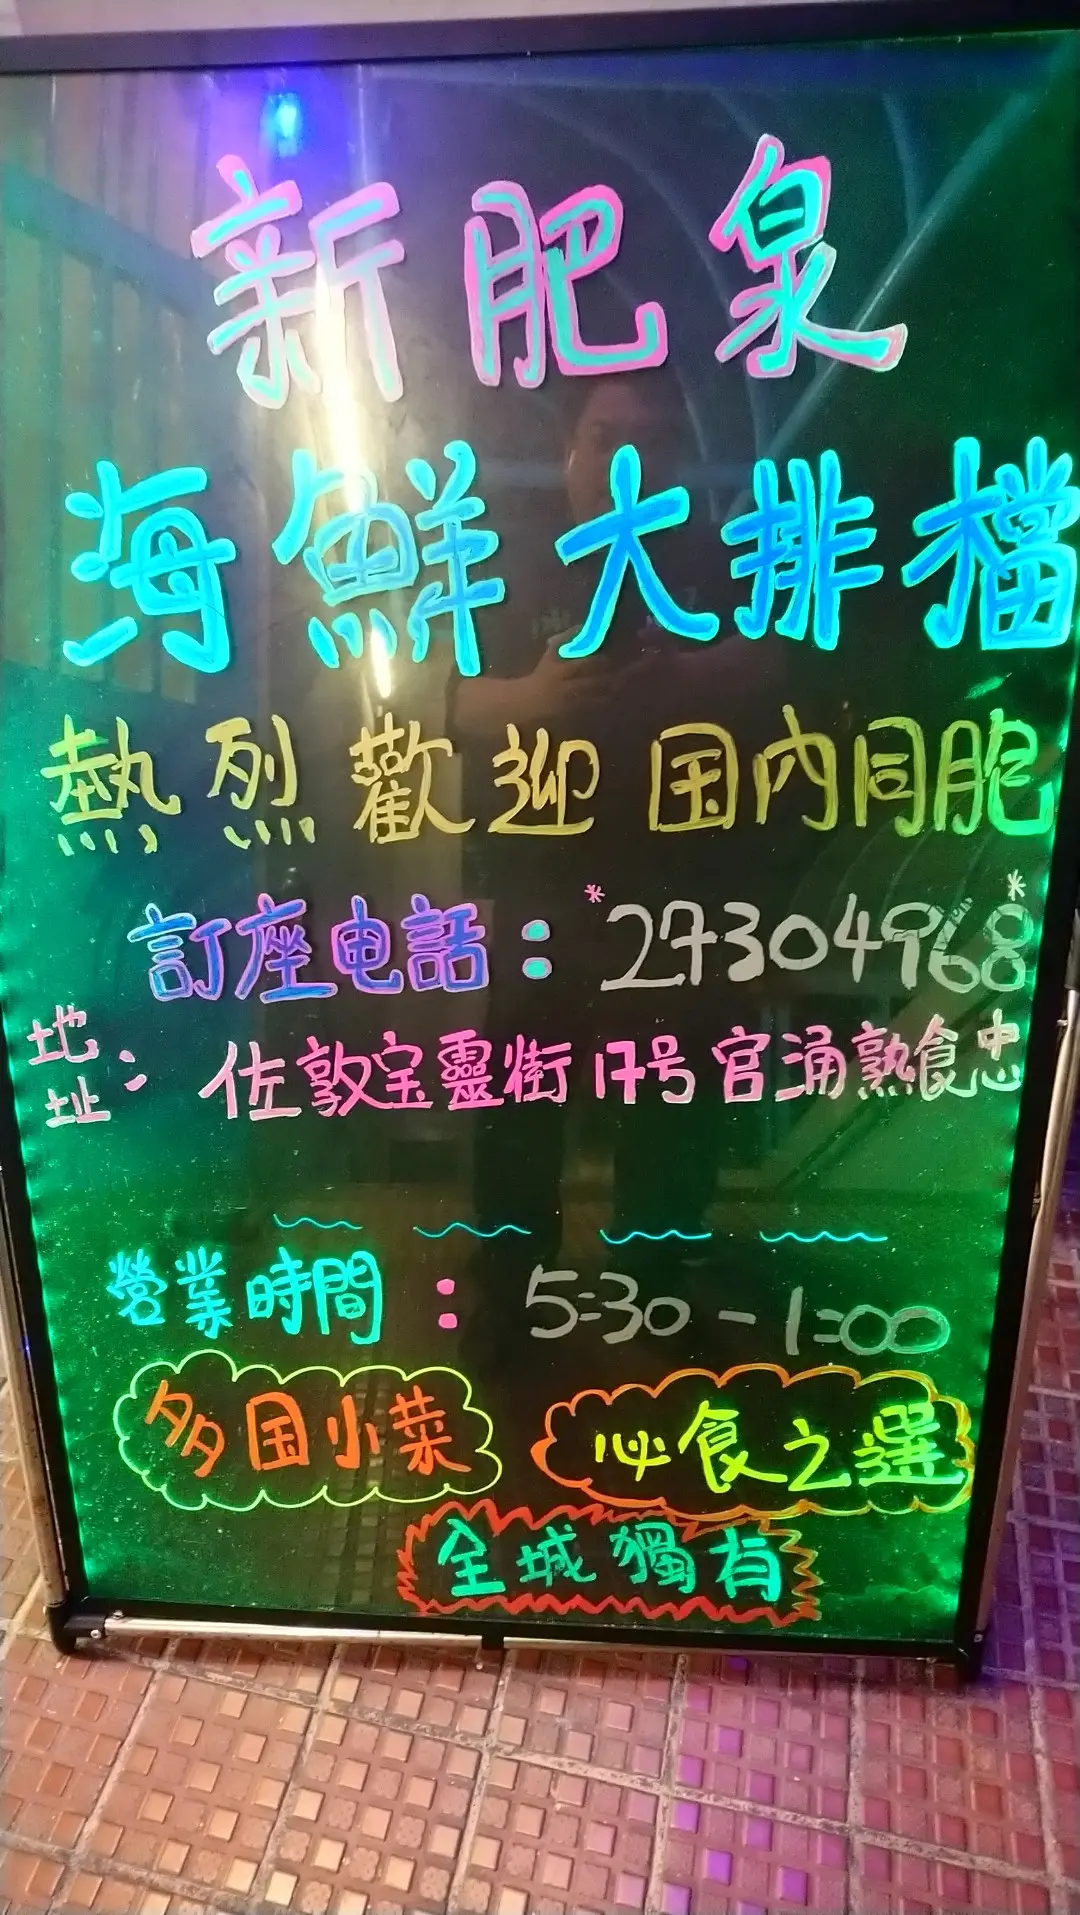 新肥泉
海鮮大排檔
熱烈歡迎国内同胞
訂座电話：*27304968*
地址：佐敦宝靈街17号官涌熟食忠
營業時間：5:30-1:00
多国小菜
必食之選
全城獨有